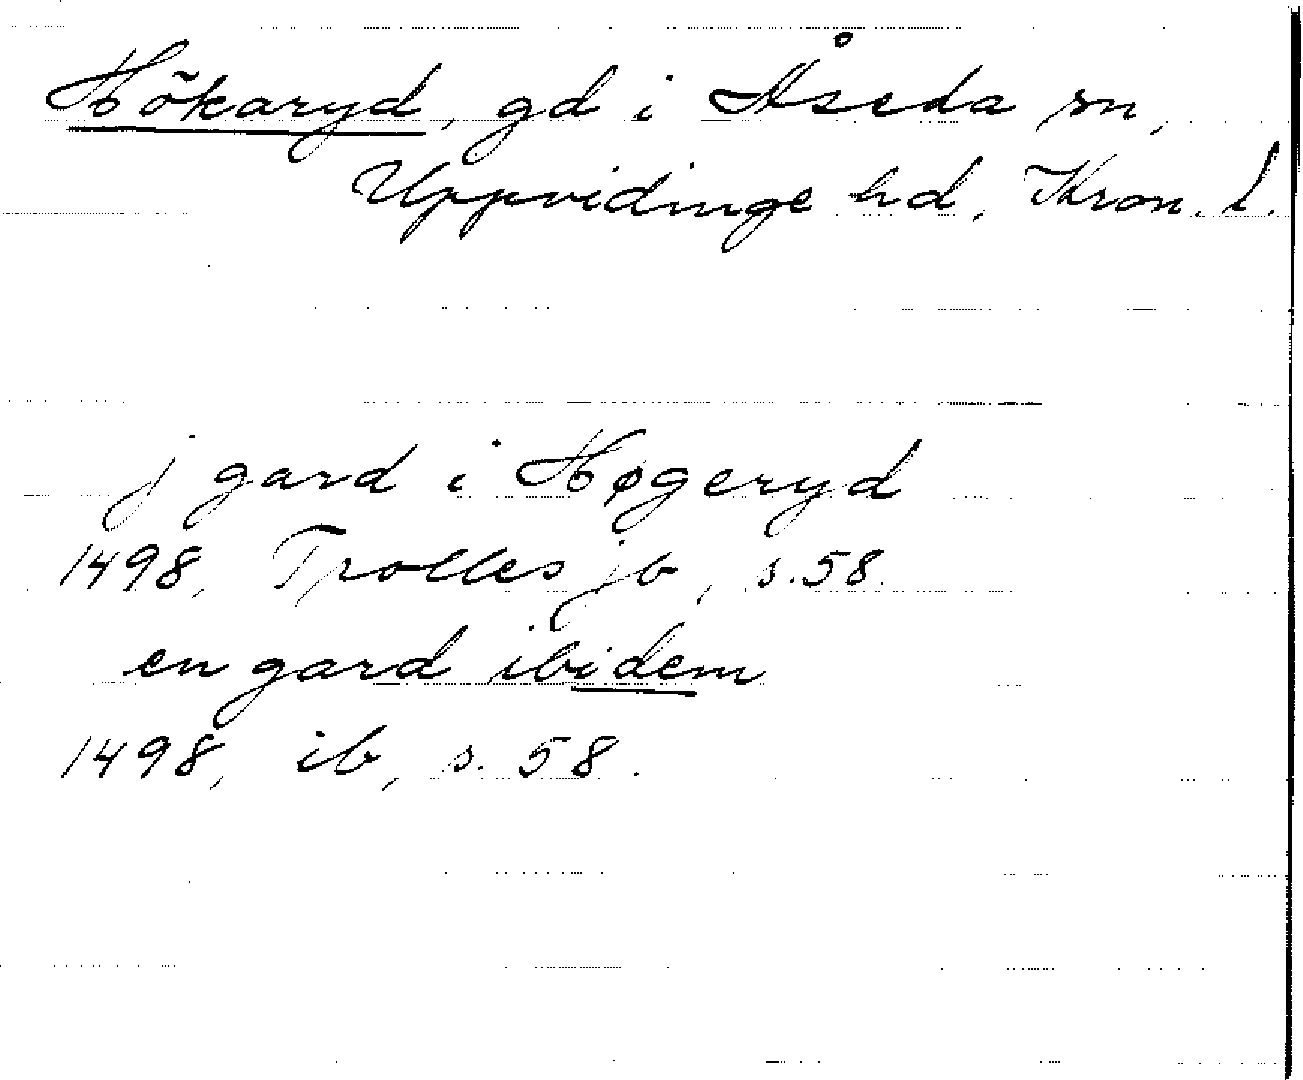 Hökaryd, gd i Åseda sn,
Uppvidinge hd, Kron. l.
j gard i Høgeryd
1498, Trolles jb, s. 58.
en gard ibidem
1498, ib, s. 58.